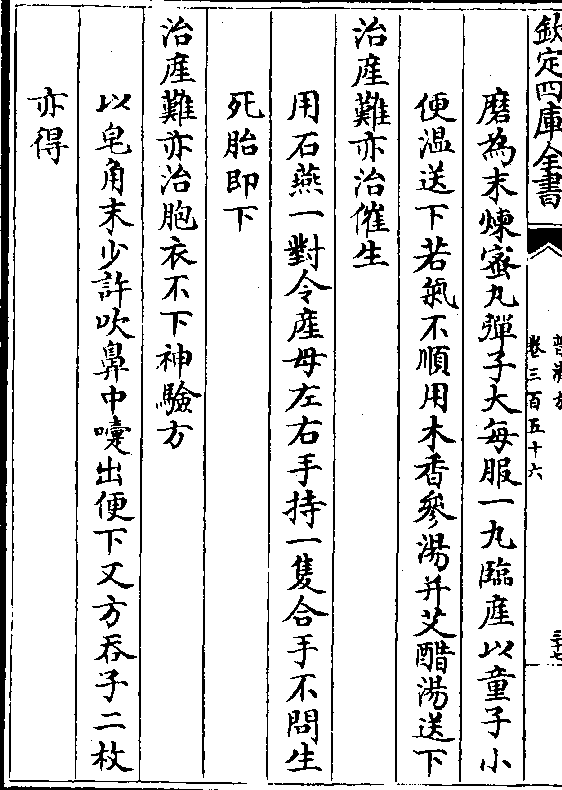 欽定四庫全書
普濟方
卷三百五十六
三十七
磨為末煉蜜丸彈子大每服一丸臨産以童子小
便温送下若氣不順用木香參湯并艾醋湯送下
治産難亦治催生
用石燕一對令産母左右手持一隻合手不問生
死胎即下
治産難亦治胞衣不下神驗方
以皂角末少許吹鼻中嚏出便下又方吞子二枚
亦得